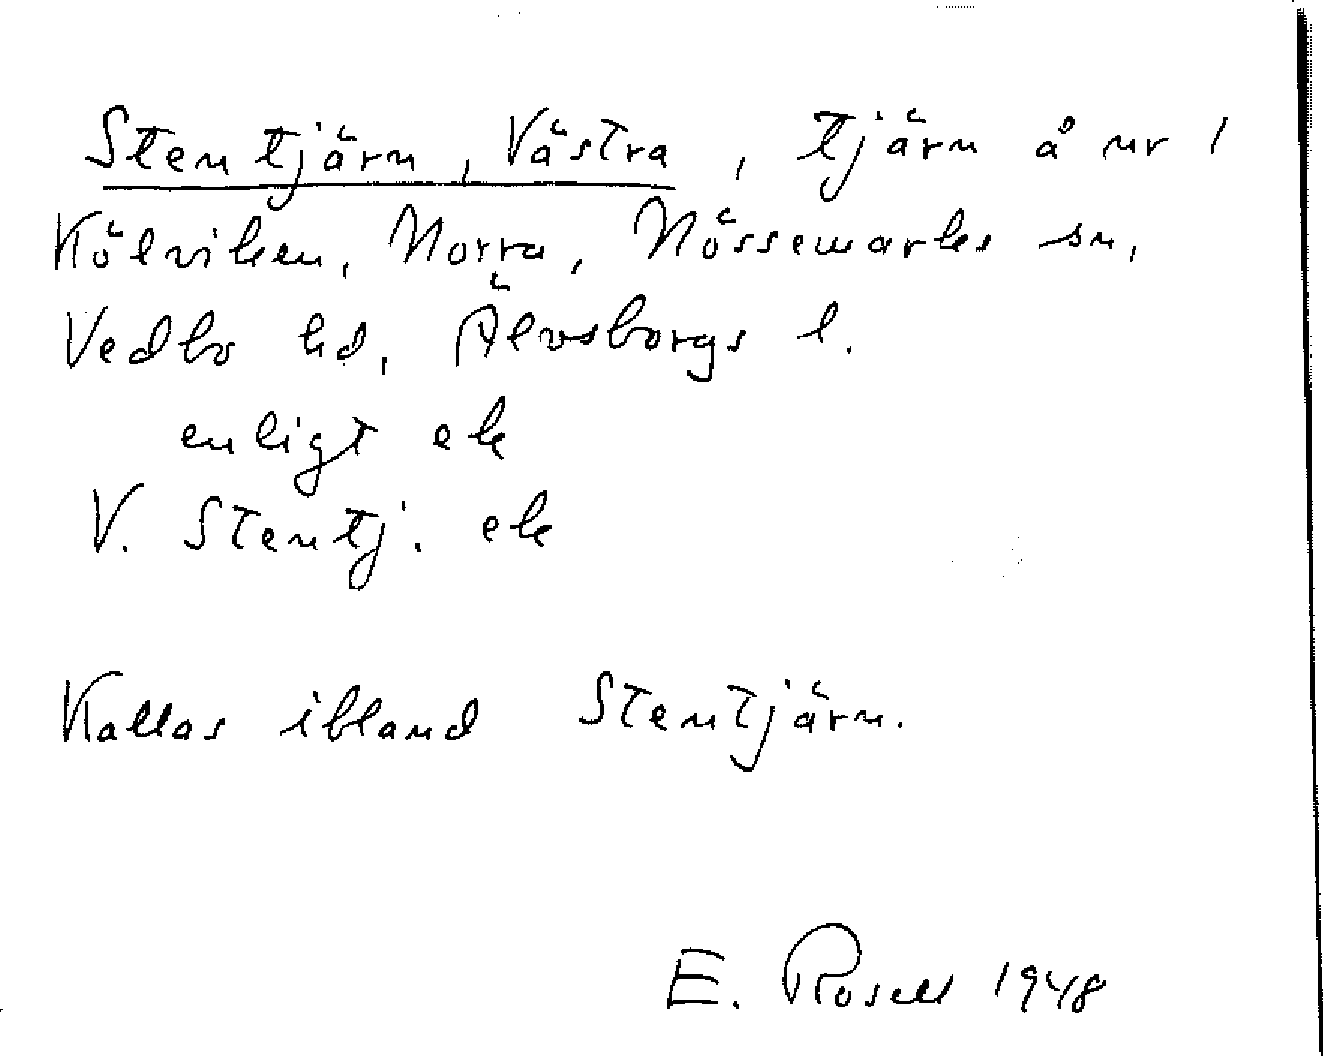 Stentjärn, Västra, tjärn å nr 1
Kölviken, Norra, Nössemarks sn,
Vedbo hd, Älvsborgs l.
enligt ek
V. Stentj. ek
Kallas ibland Stentjärn.
E. Rosell 1948